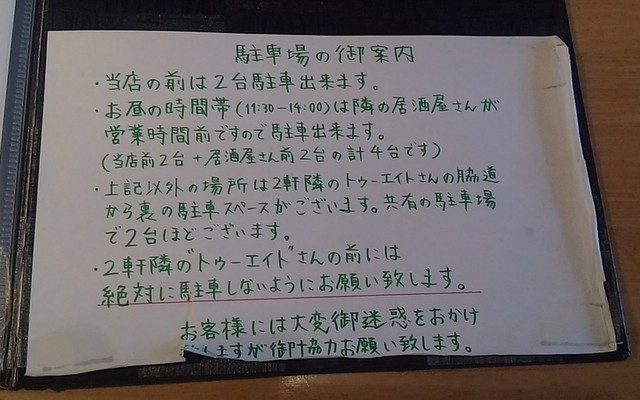 駐車場の御案内
・当店の前は2台駐車出来ます。
・お昼の時間帯(11:30-14:00)は隣の居酒屋さんが
営業時間前ですので駐車出来ます。
(当店前2台+居酒屋さん前2台の計4台です)
・上記以外の場所は2軒隣のトゥーエイトさんの脇道
から裏の駐車スペースがございます。共有の駐車場
で2台ほどございます。
・2軒隣の"トゥーエイト"さんの前には
絶対に駐車しないようにお願い致します。
お客様には大変御迷惑をおかけ
しますが御協力お願い致します。